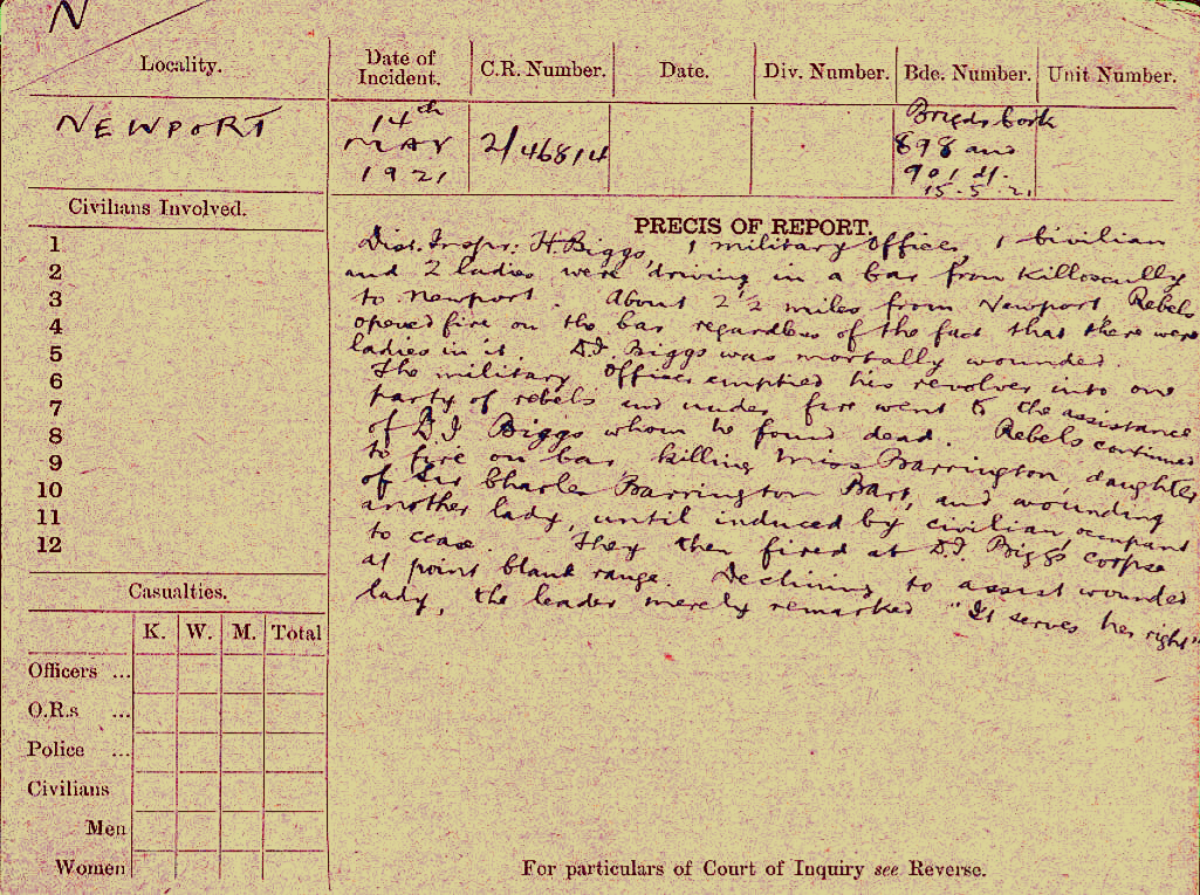 N
Locality.
Date of Incident.
C.R. Number.
Date.
Div. Number.
Bde. Number.
Unit Number.
NEWPORT
14th
MAY
1921
2/46814
Brigds Cork
898 and
901 d/.
15.5.21
Civilians Involved.
1
2
3
4
5
6
7
8
9
10
11
12
PRECIS OF REPORT.
Dist. Inspr: H. Biggs, 1 military Officer, 1 Civilian
and 2 ladies were driving in a car from Killoscully
to Newport. About 2½ miles from Newport Rebels
opened fire on the car regardless of the fact that there were
ladies in it. D.I. Biggs was mortally wounded.
The military Officer emptied his revolver into one
party of rebels and under fire went to the assistance
of D.I Biggs whom he found dead. Rebels continued
to fire on car, killing Miss Barrington, daughter
of Sir Charles Barrington Bart, and wounding
another lady, until induced by civilian occupant
to cease. They then fired at D.I. Biggs corpse
at point blank range. Declining to assist wounded
lady, the leader merely remarked "It serves her right"
Casualties.
K. W. M. Total
Officers ...
O.R.s ...
Police ...
Civilians
Men
Women
For particulars of Court of Inquiry see Reverse.